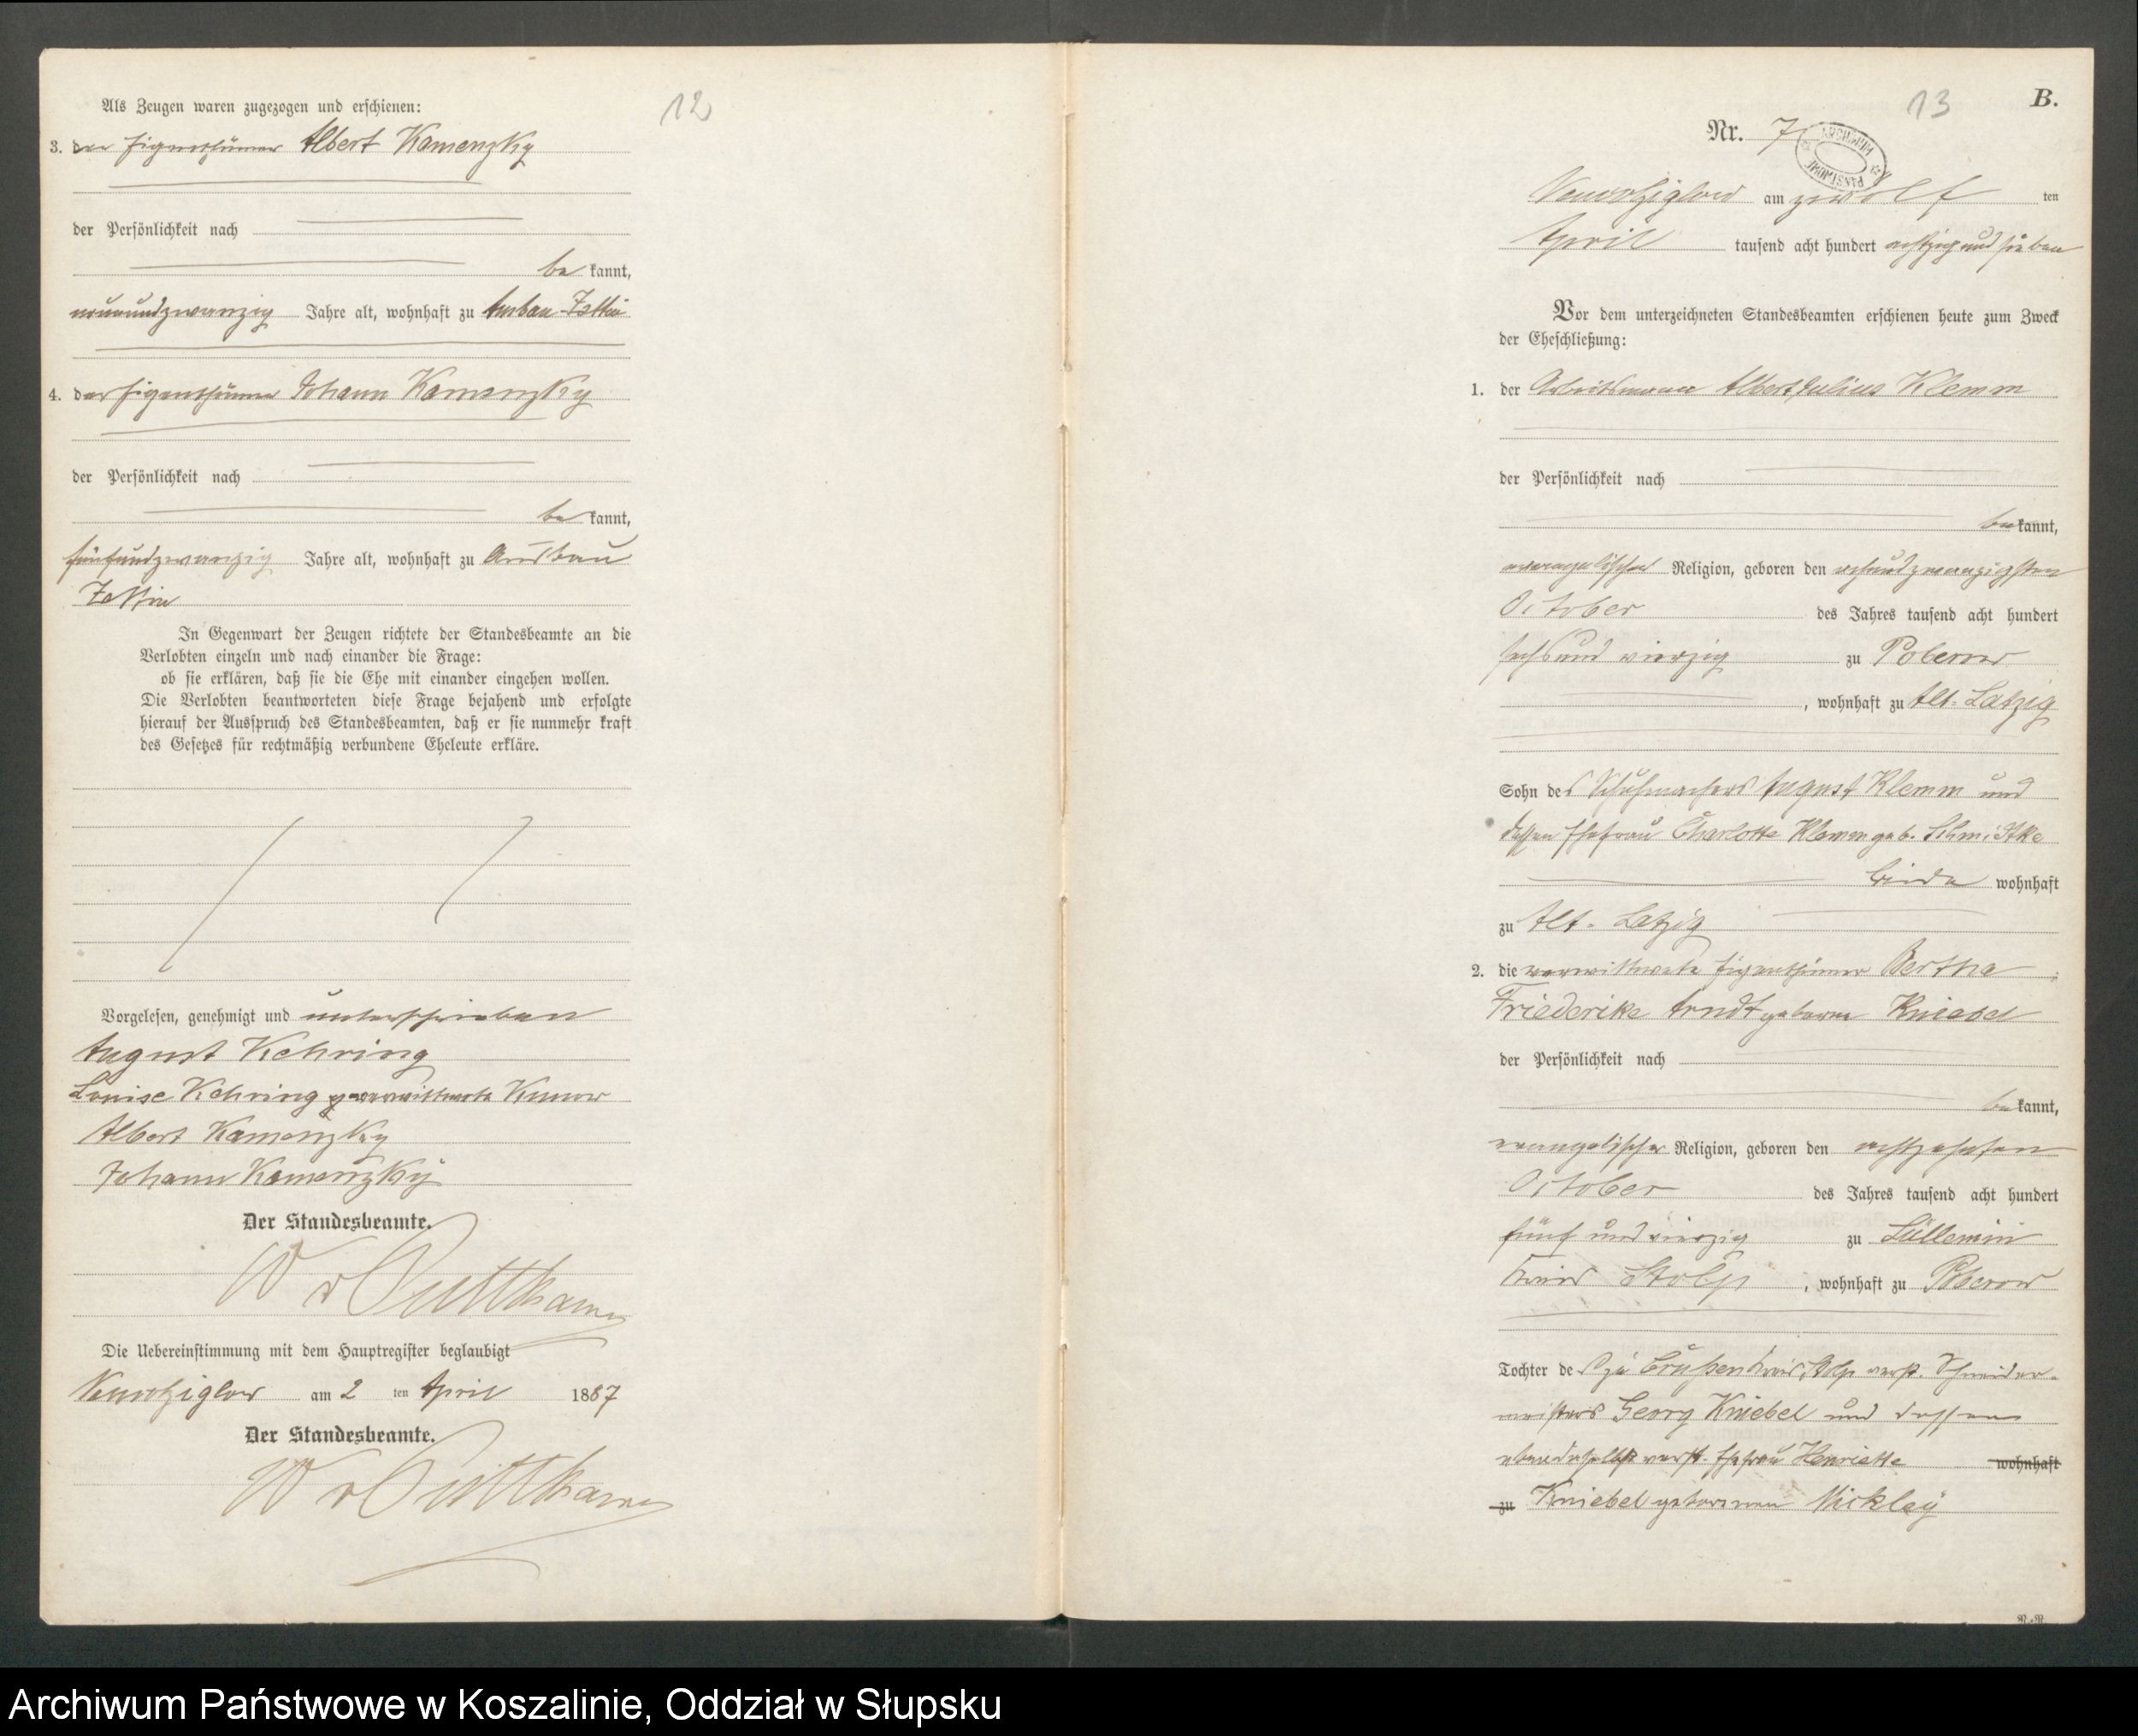 12
Als Zeugen waren zugezogen und erschienen:
3. der Eigenthümer Albert Kamenzky
der Persönlichkeit nach
be kannt,
neunundzwanzig Jahre alt, wohnhaft zu Ausbau-
4. der Eigenthümer Johann Kamenzky
der Persönlichkeit nach
be kannt,
fünfundzwanzig Jahre alt, wohnhaft zu Ausbau
In Gegenwart der Zeugen richtete der Standesbeamte an die
Verlobten einzeln und nach einander die Frage:
ob sie erklären, daß sie die Ehe mit einander eingehen wollen.
Die Verlobten beantworteten diese Frage bejahend und erfolgte
hierauf der Ausspruch des Standesbeamten, daß er sie nunmehr kraft
des Gesetzes für rechtmäßig verbundene Eheleute erkläre.
Vorgelesen, genehmigt und unterschrieben
August Kehring
Louise Kehring verwittwete
Albert Kamenzky
Johann Kamenzky
Der Standesbeamte.
W v Puttkamer
Die Uebereinstimmung mit dem Hauptregister beglaubigt
am 2 ten April 1887
Der Standesbeamte.
W v Puttkamer
13
B.
Nr. 7
ARCHIWUM PAŃSTWOWE
am zwölf ten
April tausend acht hundert achtzig und sieben
Vor dem unterzeichneten Standesbeamten erschienen heute zum Zweck
der Eheschließung:
1. der Arbeitsmann Albert Julius Klemm
der Persönlichkeit nach
be kannt,
evangelischer Religion, geboren den achtundzwanzigsten
October des Jahres tausend acht hundert
sechs und vierzig zu Poberow
, wohnhaft zu Alt-Latzig
Sohn des Schuhmachers August Klemm und
dessen Ehefrau Charlotte Klemm geb. Schmidtke
beide wohnhaft
zu Alt-Latzig
2. die verwittwete Eigenthümer Bertha
Friederike Arndt geborne Kniebel
der Persönlichkeit nach
be kannt,
evangelischer Religion, geboren den achtzehnten
October des Jahres tausend acht hundert
fünf und vierzig zu Lüllemin
Kreis Stolp, wohnhaft zu Poberow
Tochter des zu Crussen Kreis Stolp verst. Schneider-
meisters Georg Kniebel und dessen
ebendaselbst verst. Ehefrau Henriette wohnhaft
zu Kniebel geborenen Nickley
Archiwum Państwowe w Koszalinie, Oddział w Słupsku